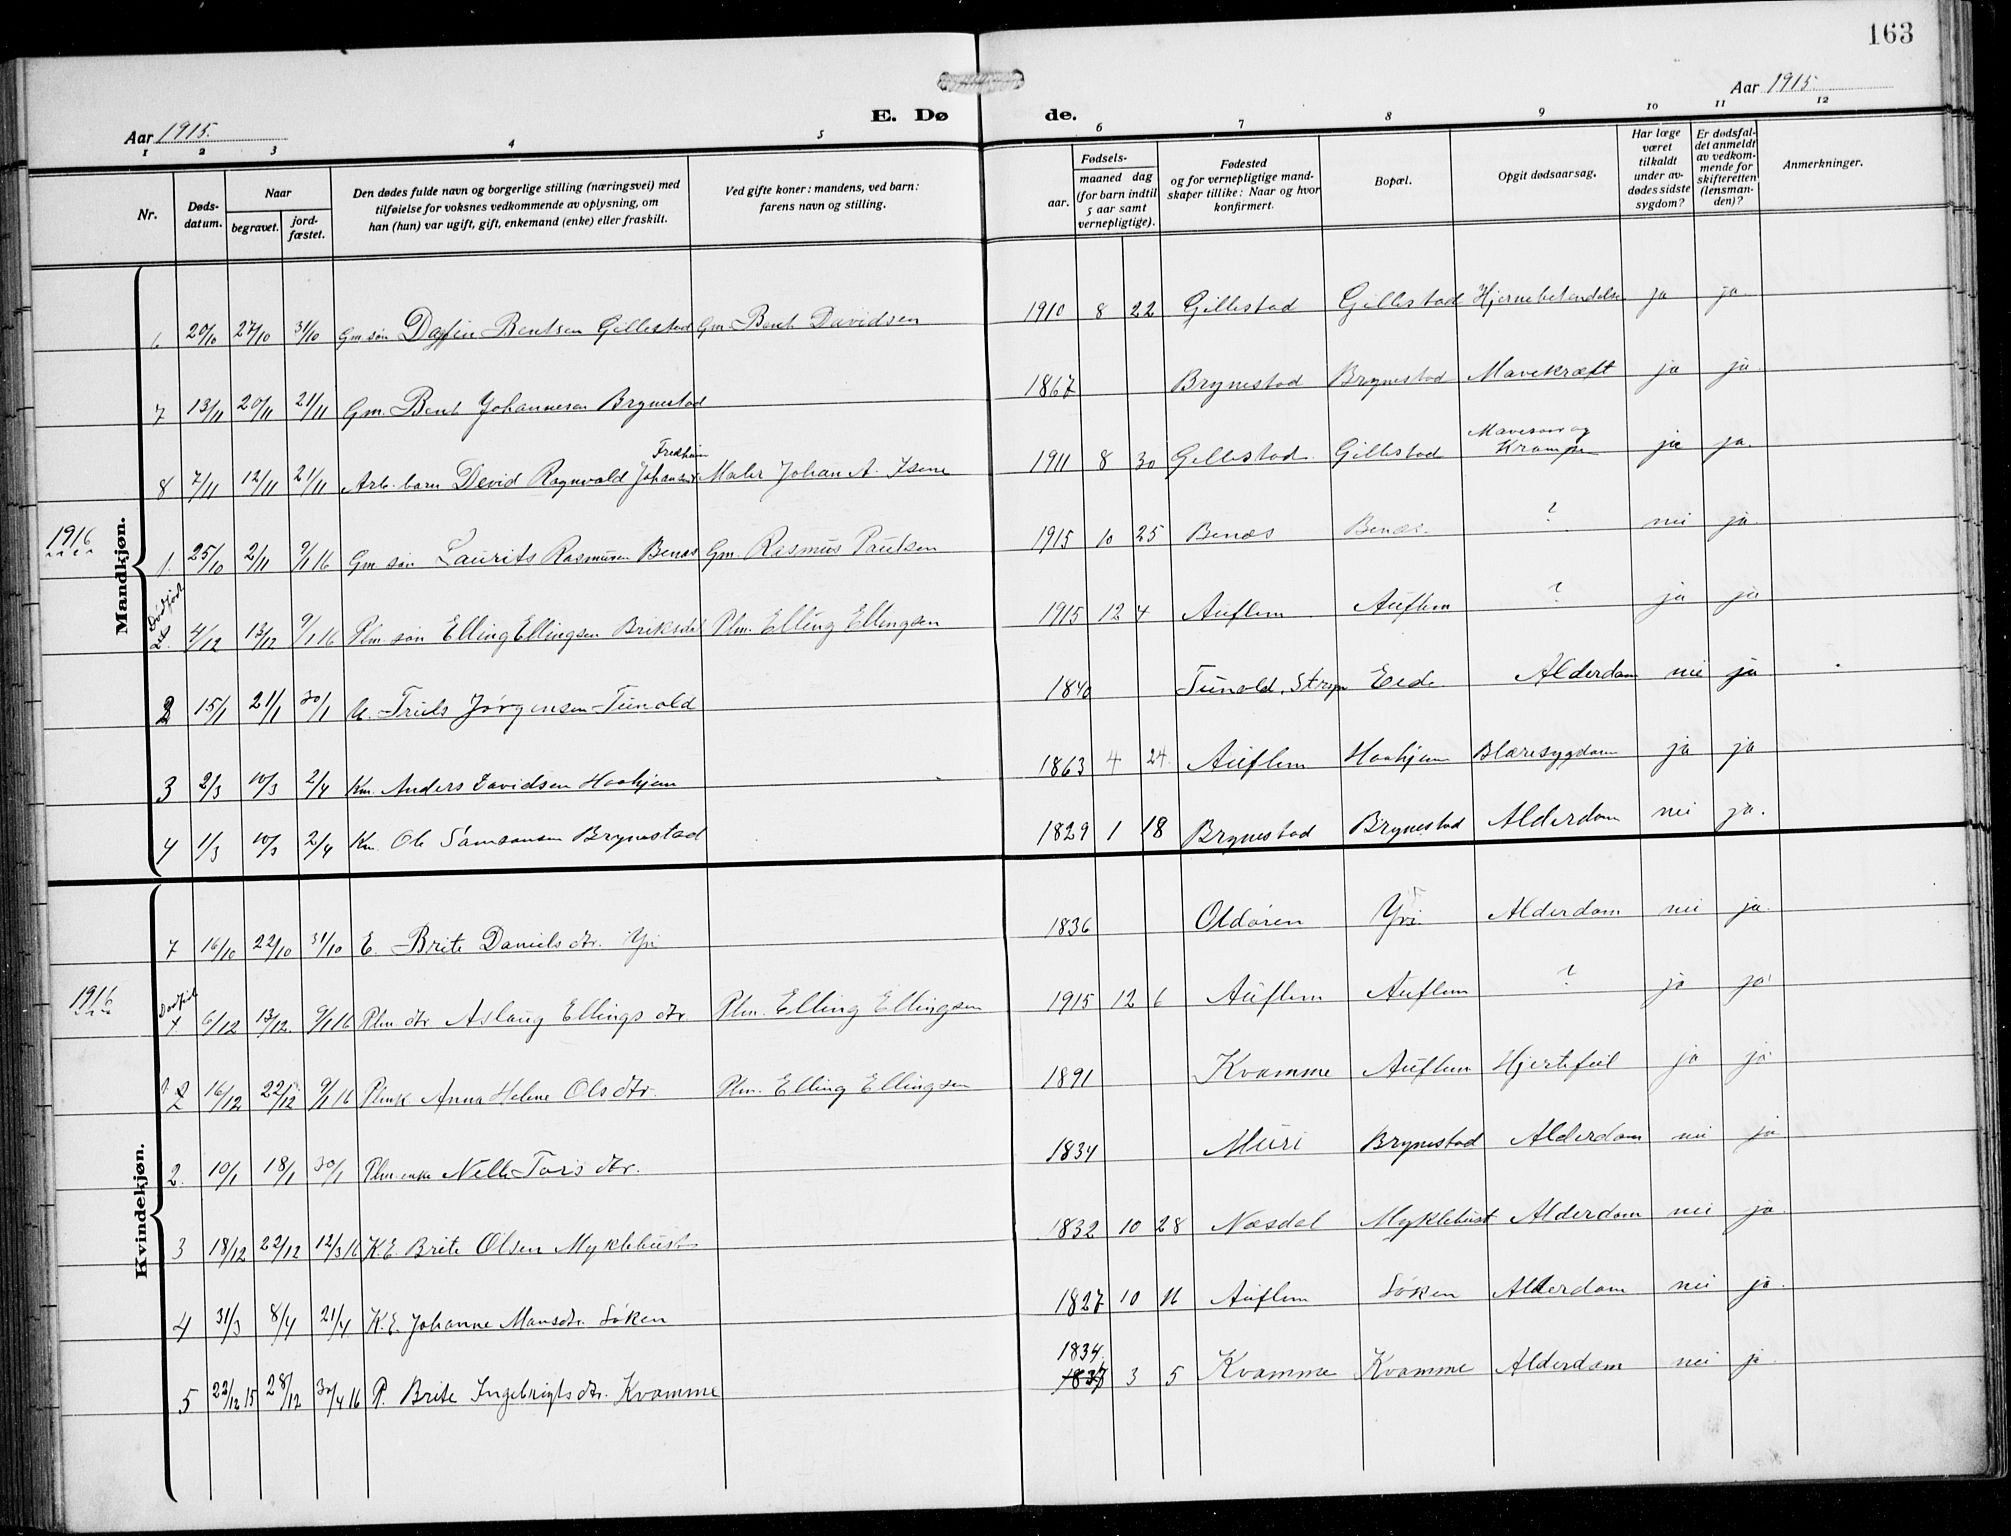 163
Aar 1915.
E. Dø de.
Aar 1915.
1 2 3 4 5 6 7 8 9 10 11 12
Nr.
Døds-
datum.
Naar
begravet.
jord-
fæstet.
Den dødes fulde navn og borgerlige stilling (næringsvei) med
tilføielse for voksnes vedkommende av oplysning, om
han (hun) var ugift, gift, enkemand (enke) eller fraskilt.
Ved gifte koner: mandens, ved barn:
farens navn og stilling.
Fødsels-
aar.
maaned dag
(for barn indtil
5 aar samt
vernepligtige).
Fødested
og for vernepligtige mand-
skaper tillike: Naar og hvor
konfirmert.
Bopæl.
Opgit dødsaarsag.
Har læge
været
tilkaldt
under av-
dødes sidste
sygdom?
Er dødsfal-
det anmeldt
av vedkom-
mende for
skifteretten
(lensman-
den)?
Anmerkninger.
Mandkjøn.
6 20/10 27/10 31/10 Gm søn Dagfin Bentsen Gillestad Gm. Bent Davidsen 1910 8 22 Gillestad Gillestad Hjernebetendelse ja ja
7 13/11 20/11 21/11 Gm. Bent Johannesen Brynestad 1867 Brynestad Brynestad Mavekræft ja ja
8 7/11 12/11 21/11 Arb. barn David Ragnvald Johansen Fredheim Maler Johan A. Isene 1911 8 30 Gillestad Gillestad Mavesaar og Krampe ja ja.
1916
1. 25/10 2/11 9/1 16 Gm søn Laurits Rasmusen Benæs Gm. Rasmus Paulsen 1915 10 25 Benæs Benæs. ? nei ja
Dødfødt 4/12 13/12 9/1 16 Plm. søn Elling Ellingsen Briksdal Plm. Elling Ellingsen 1915 12 4 Auflem Auflem ? ja ja
2 15/1 21/1 30/1 K. Truls Jørgensen Tunold 1840 Tunold, Stryn Eide Alderdom nei ja
3 2/3 10/3 2/4 Km. Anders Davidsen Haahjem 1863 4 24. Auflem Haahjem Blæresygdom ja ja
4 1/3 10/3 2/4 Km. Ole Samsonsen Brynestad 1829 1 18 Brynestad Brynestad Alderdom nei ja.
Kvindekjøn.
7 16/10 22/10 31/10 E. Brite Daniels dtr. Yri 1836 Oldøren Yri Alderdom nei ja.
1916
Dødfødt 6/12 13/12. 9/1 16 Plm. dtr Aslaug Ellings dtr. Plm. Elling Ellingsen 1915 12 6 Auflem Auflem ? ja ja
16/12 22/12 9/1 16 Plmk Anna Helene Ols dtr. Plm. Elling Ellingsen 1891 Kvamme Auflem Hjertefeil ja ja
2. 10/1 18/1 30/1 Plm. enke Nille Tors dtr. 1834 Muri Brynestad Alderdom nei ja
3 18/12 22/12 12/3 16 K.E. Brite Olsen Myklebust 1832 10 28 Næsdal Myklebust Alderdom nei ja
4 31/3 8/4 21/4 K.E. Johanne Mons dtr. Søken 1827 10 16 Auflem Søken Alderdom nei ja.
5 22/12 15 28/12 30/4 16 P. Brite Ingebrigts dtr. Kvamme 1834. 1837 3 5 Kvamme Kvamme Alderdom nei ja